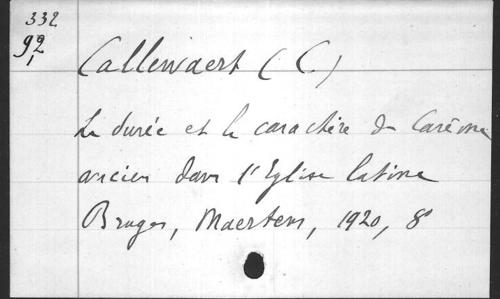 332
92
1
Callewaert (C)
La durée et le caractère du Carême
ancien dans l'Eglise latine
Bruges, Maertens, 1920, 8°